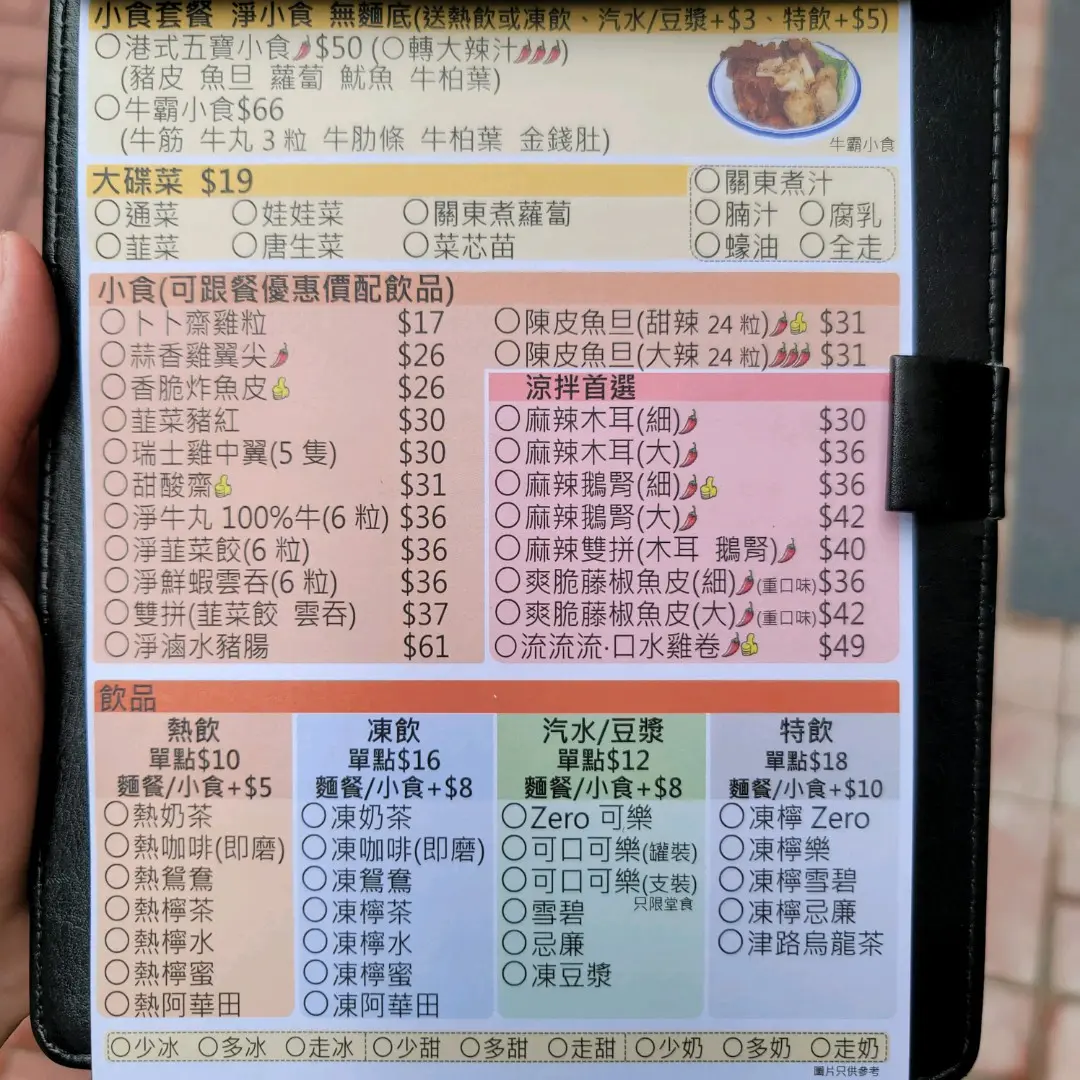 小食套餐 淨小食 無麵底(送熱飲或凍飲、汽水/豆漿+$3、特飲+$5)
〇港式五寶小食$50(〇轉大辣汁)
(豬皮 魚旦 蘿蔔 魷魚 牛柏葉)
〇牛霸小食$66
(牛筋 牛丸3粒 牛肋條 牛柏葉 金錢肚)
牛霸小食
大碟菜 $19
〇通菜 〇娃娃菜 〇關東煮蘿蔔
〇韮菜 〇唐生菜 〇菜芯苗
〇關東煮汁
〇腩汁 〇腐乳
〇蠔油 〇全走
小食(可跟餐優惠價配飲品)
〇卜卜齋雞粒 $17
〇蒜香雞翼尖 $26
〇香脆炸魚皮 $26
〇韮菜豬紅 $30
〇瑞士雞中翼(5隻) $30
〇甜酸齋 $31
〇淨牛丸 100%牛(6粒) $36
〇淨韮菜餃(6粒) $36
〇淨鮮蝦雲吞(6粒) $36
〇雙拼(韮菜餃 雲吞) $37
〇淨滷水豬腸 $61
〇陳皮魚旦(甜辣 24粒) $31
〇陳皮魚旦(大辣 24粒) $31
涼拌首選
〇麻辣木耳(細) $30
〇麻辣木耳(大) $36
〇麻辣鵝腎(細) $36
〇麻辣鵝腎(大) $42
〇麻辣雙拼(木耳 鵝腎) $40
〇爽脆藤椒魚皮(細)(重口味)$36
〇爽脆藤椒魚皮(大)(重口味)$42
〇流流流·口水雞卷 $49
飲品
熱飲
單點$10
麵餐/小食+$5
〇熱奶茶
〇熱咖啡(即磨)
〇熱鴛鴦
〇熱檸茶
〇熱檸水
〇熱檸蜜
〇熱阿華田
凍飲
單點$16
麵餐/小食+$8
〇凍奶茶
〇凍咖啡(即磨)
〇凍鴛鴦
〇凍檸茶
〇凍檸水
〇凍檸蜜
〇凍阿華田
汽水/豆漿
單點$12
麵餐/小食+$8
〇Zero 可樂
〇可口可樂(罐裝)
〇可口可樂(支裝)
只限堂食
〇雪碧
〇忌廉
〇凍豆漿
特飲
單點$18
麵餐/小食+$10
〇凍檸 Zero
〇凍檸樂
〇凍檸雪碧
〇凍檸忌廉
〇津路烏龍茶
〇少冰 〇多冰 〇走冰 〇少甜 〇多甜 〇走甜 〇少奶 〇多奶 〇走奶
圖片只供參考